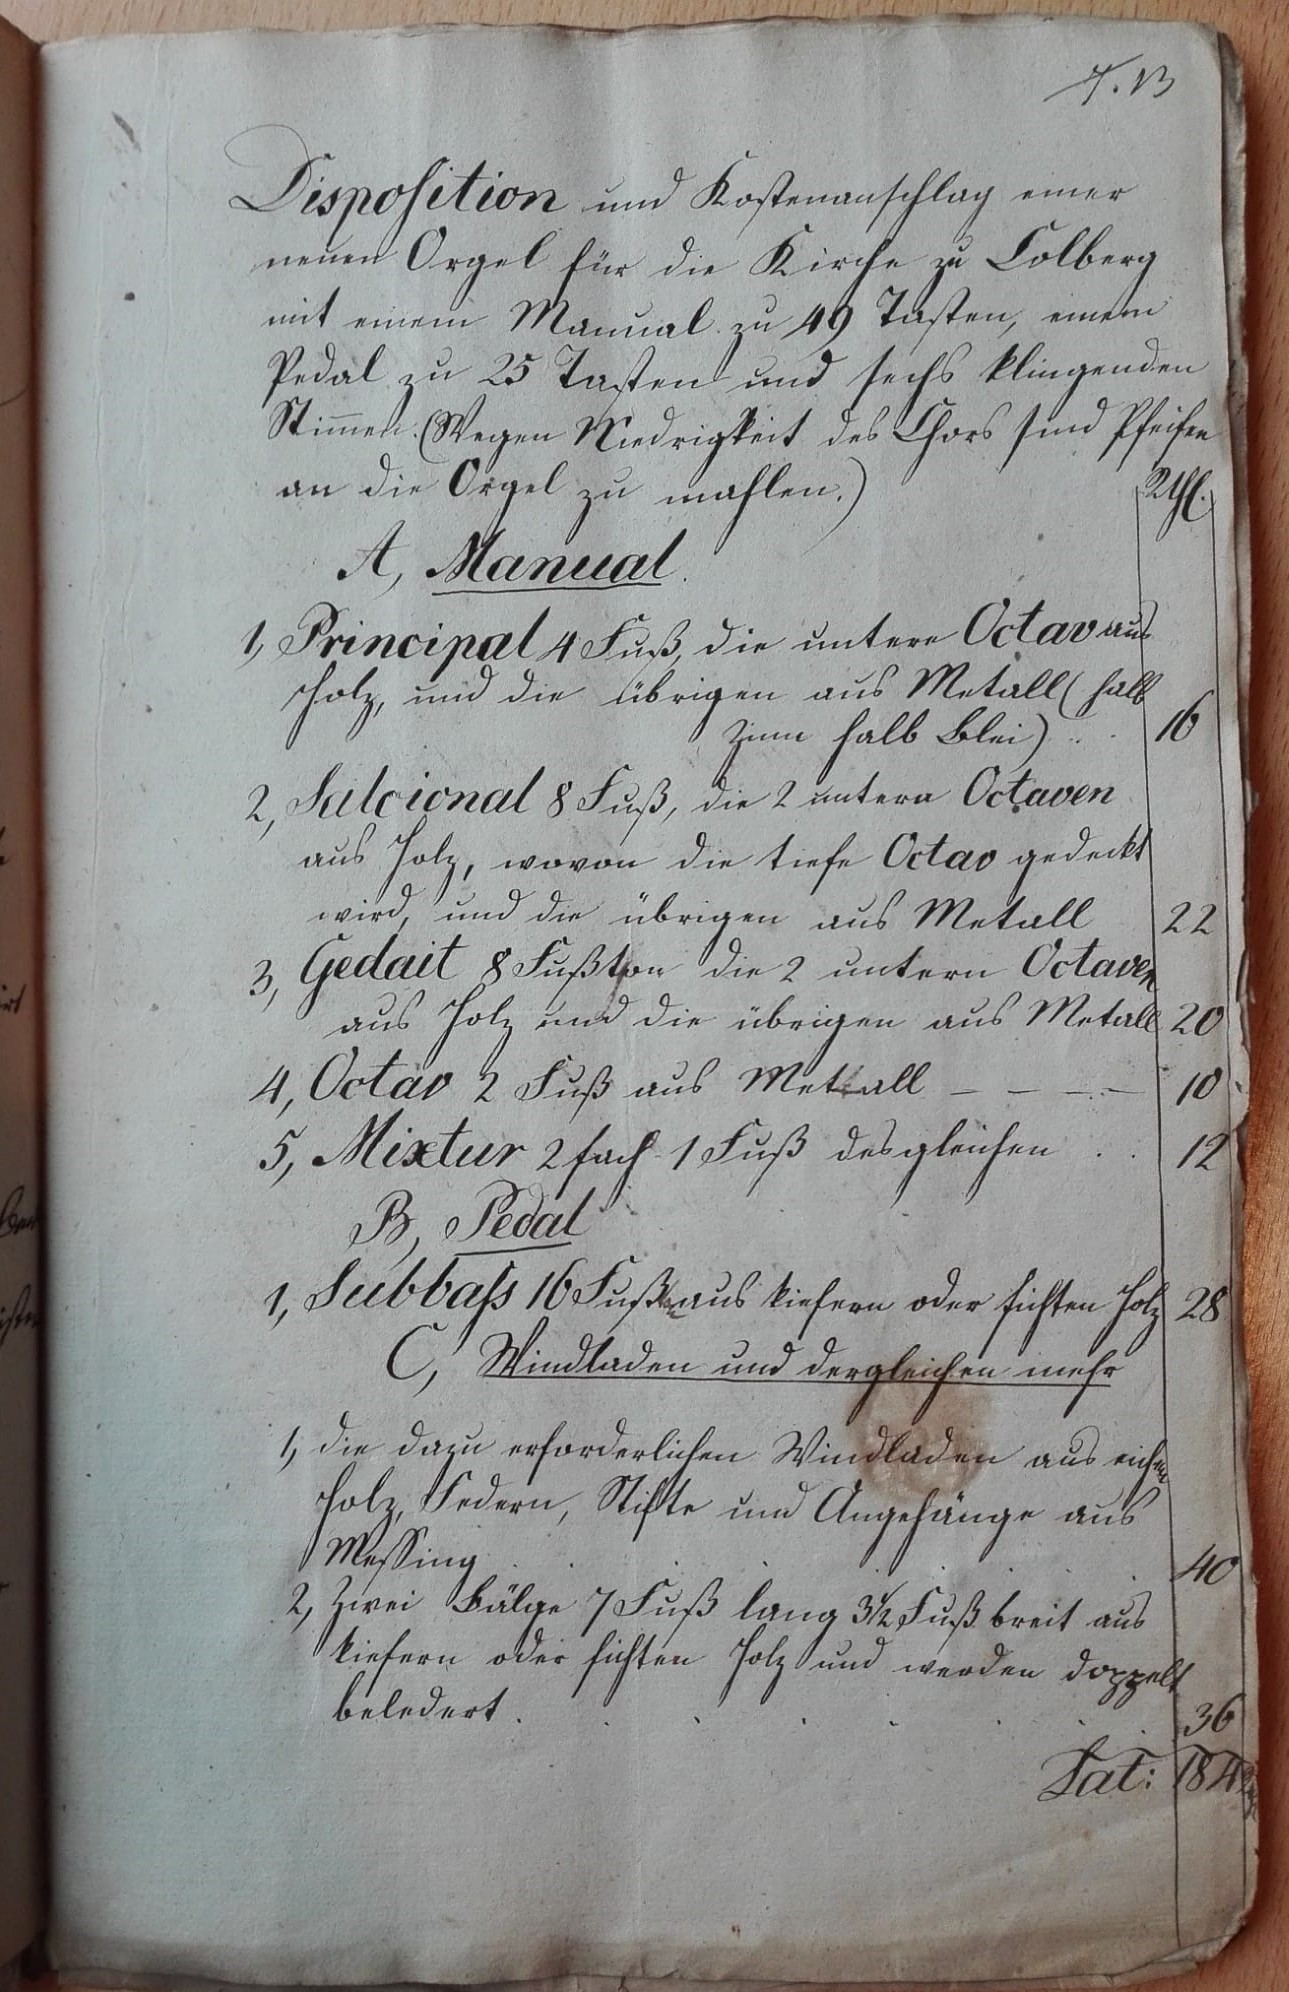 Disposition und Kostenanschlag einer
neuen Orgel für die Kirche zu Colberg
mit einem Manual zu 49 Tasten, einem
Pedal zu 25 Tasten und sechs klingenden
Stim̄en. (Wegen Niedrigkeit des Chors sind Pfeifen
an die Orgel zu mahlen.)
Rthl.
A, Manual.
1, Principal 4 Fuß, die untere Octav aus
Holz, und die übrigen aus Metall (halb
Zinn halb Blei) . . 16
2, Salcional 8 Fuß, die 2 untern Octaven
aus Holz, wovon die tiefe Octav gedeckt
wird, und die übrigen aus Metall 22
3, Gedait 8 Fußton die 2 untern Octaven
aus Holz und die übrigen aus Metall 20
4, Octav 2 Fuß aus Metall – – – – 10
5, Mixtur 2 fach 1 Fuß desgleichen . . 12
B, Pedal
1, Subbaſs 16 Fuß aus kiefern oder fichten Holz 28
C, Windladen und dergleichen mehr
1, die dazu erforderlichen Windladen aus eichen
Holz, Federn, Stifte und Angehänge aus
Messing . . . 40
2, Zwei Bälge 7 Fuß lang 3½ Fuß breit aus
kiefern oder fichten Holz und werden doppelt
beledert . . . . . . . 36
Lat: 184